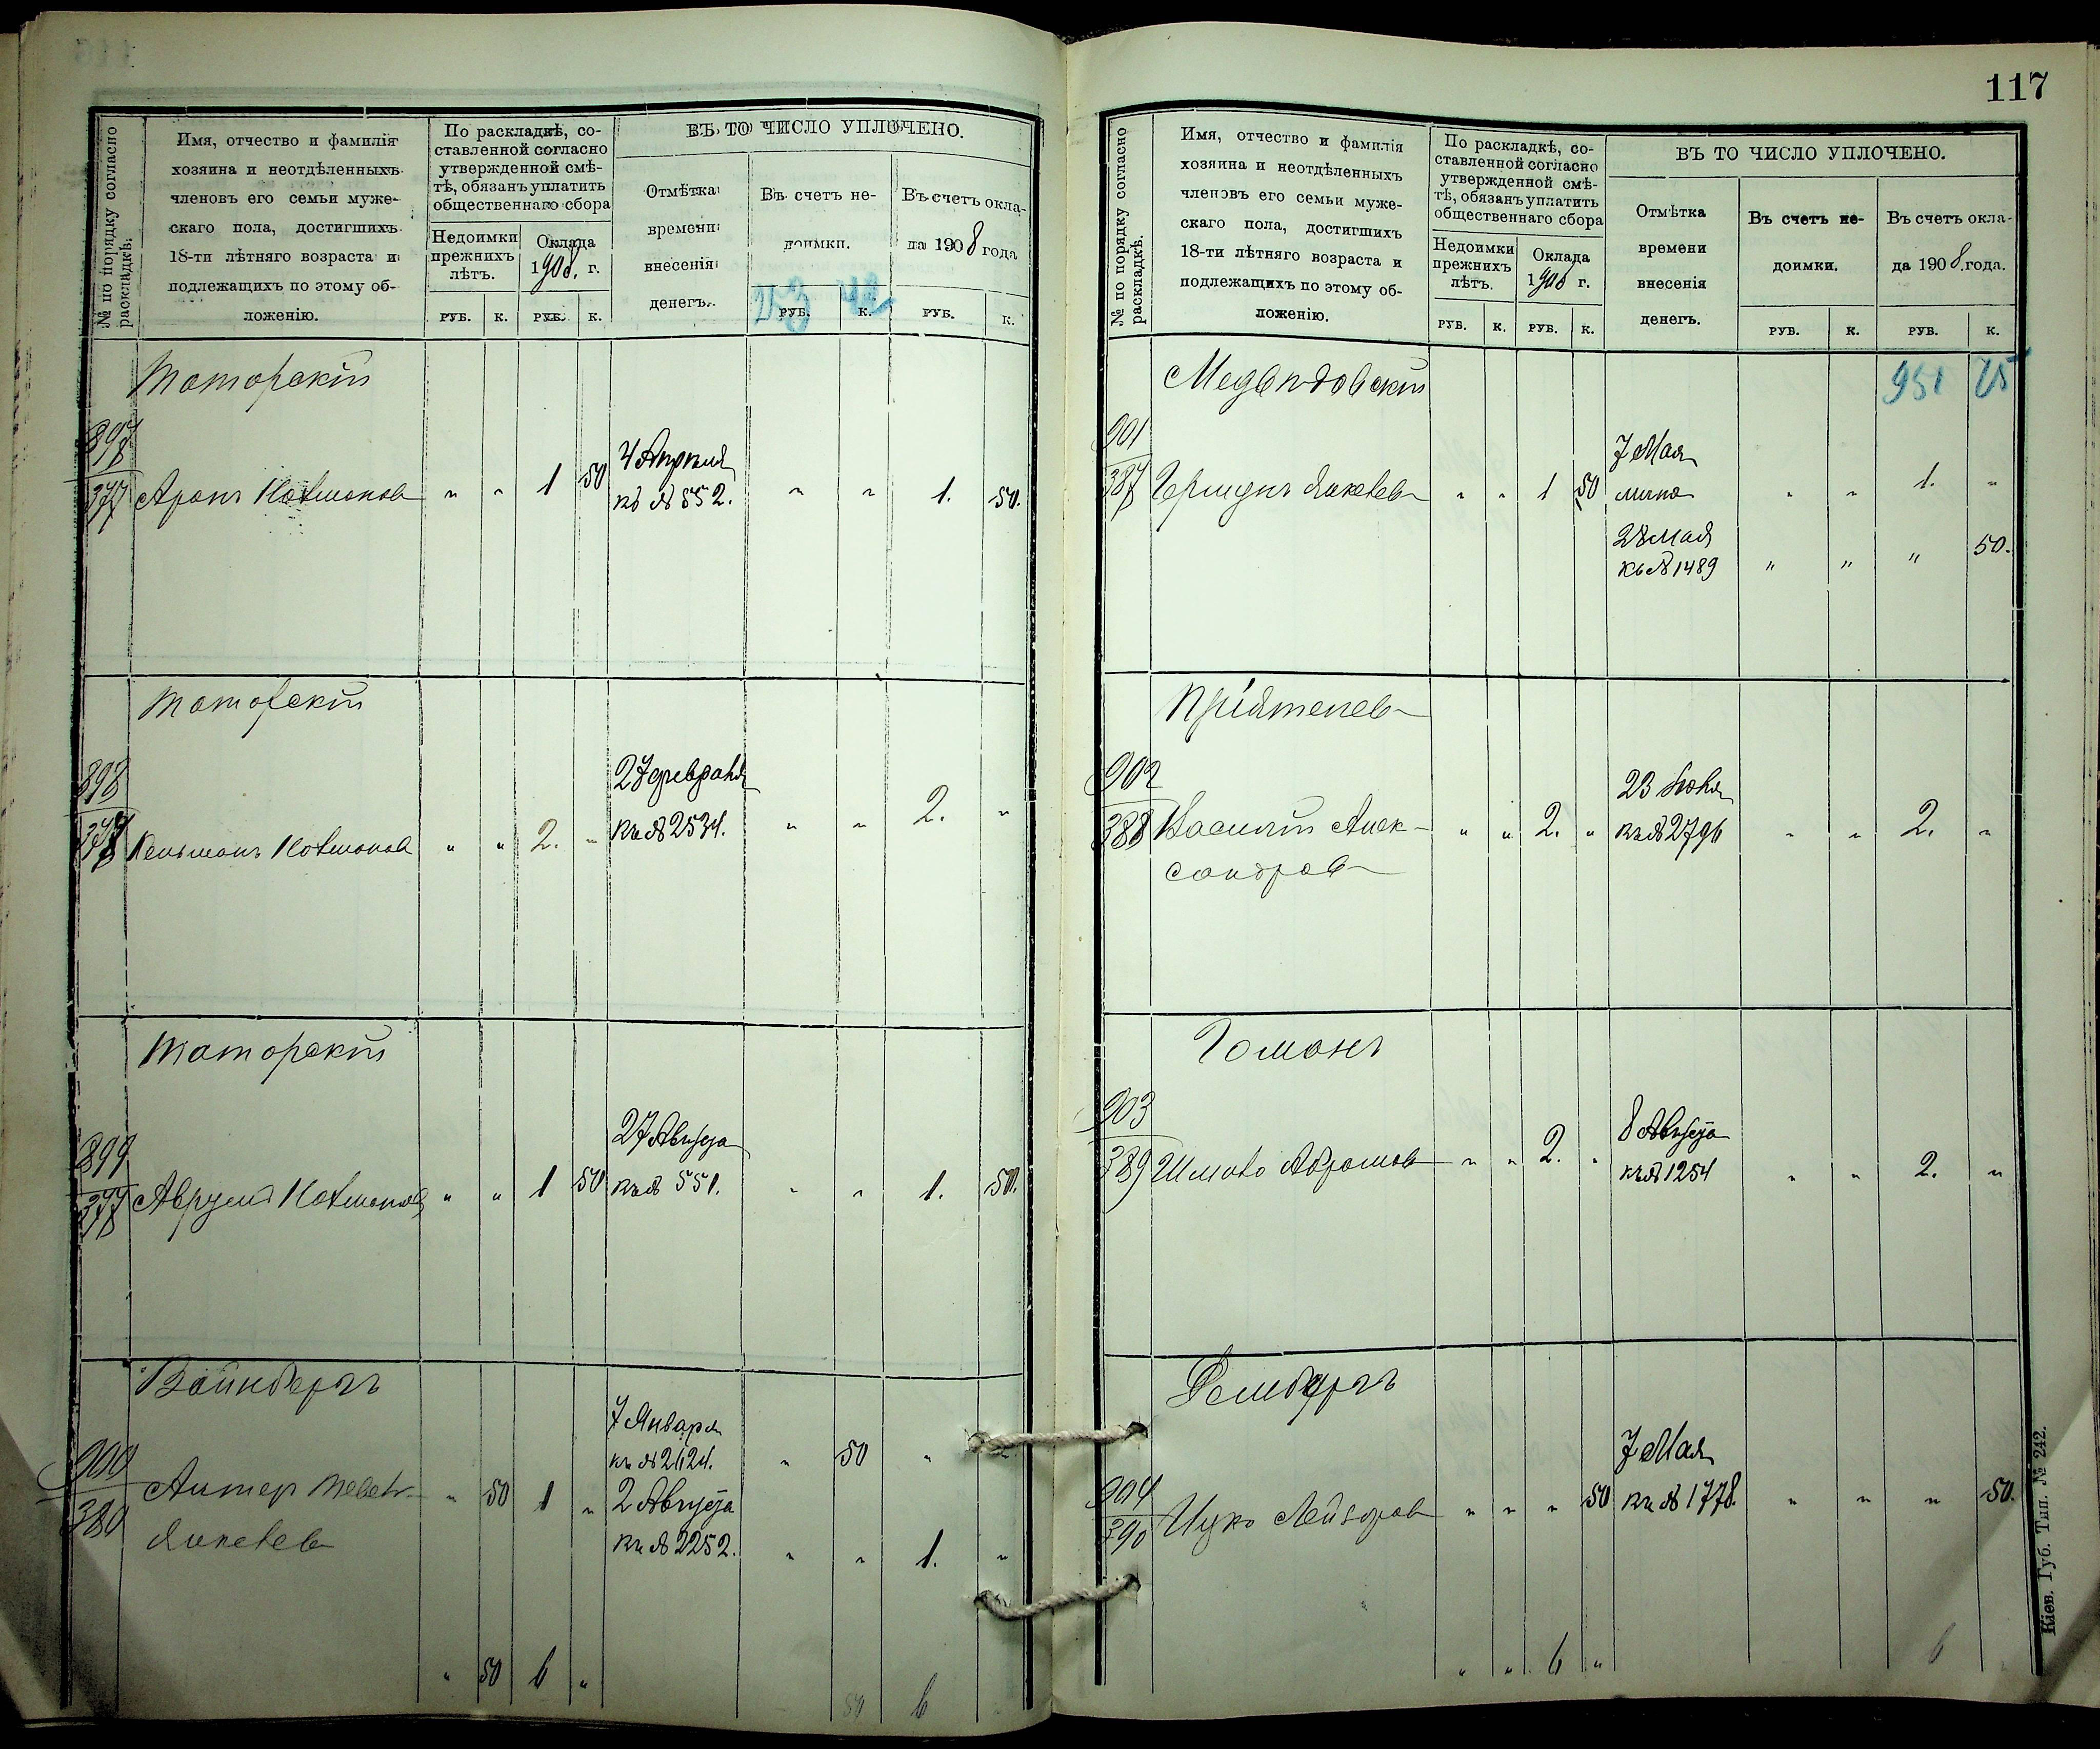 № по порядку согласно раскладкѣ.
Имя, отчество и фамилія
хозяина и неотдѣленныхъ
членовъ его семьи муже-
скаго пола, достигшихъ
18-ти лѣтняго возраста и
подлежащихъ по этому об-
ложенію.
По раскладкѣ, со-
ставленной согласно
утвержденной смѣ-
тѣ, обязанъ уплатить
общественнаго сбора
Недоимки
прежнихъ
лѣтъ.
Оклада
1908. г.
РУБ. К. РУБ. К.
ВЪ ТО ЧИСЛО УПЛОЧЕНО.
Отмѣтка
времени
внесенія
денегъ.
Въ счетъ не-
доимки.
Въ счетъ окла-
да 1908 года
РУБ. К. РУБ. К.
Таторскій
897
377 Аронъ " " 1 50 4 Апрѣля " " 1. 50.
къ № 552.
Таторскій
898
378 " " 2. " 27 февраля " " 2. "
къ № 2534.
Таторскій
899
Аврумъ " " 1 50 27 Августа " " 1. 50.
къ № 551.
Вайнбергъ
900
380
7 Января
къ № 2424. " 50 " "
" 50 1 " 2 Августа
къ № 2252. " " 1. "
" 50 6 "
50 6
117
№ по порядку согласно раскладкѣ.
Имя, отчество и фамилія
хозяина и неотдѣленныхъ
членовъ его семьи муже-
скаго пола, достигшихъ
18-ти лѣтняго возраста и
подлежащихъ по этому об-
ложенію.
По раскладкѣ, со-
ставленной согласно
утвержденной смѣ-
тѣ, обязанъ уплатить
общественнаго сбора
Недоимки
прежнихъ
лѣтъ.
Оклада
1908 г.
РУБ. К. РУБ. К.
ВЪ ТО ЧИСЛО УПЛОЧЕНО.
Отмѣтка
времени
внесенія
денегъ.
Въ счетъ не-
доимки.
Въ счетъ окла-
да 1908 года.
РУБ. К. РУБ. К.
951 25
Медвѣдовскій
901
387 " " 1 50 7 Мая " " 1. "
28 Мая
къ № 1489 " " " 50.
Пріятелев
902
388 Василій Алек-
сандров " " 2. " 23 къ № 2796 " " 2. "
Гоманъ
903
389 Шмуль Абрамов " " 2. " 8 Августа
къ № 1254 " " 2. "
904
390 Ицко Лейзоров " " " 50 7 Мая
къ № 1778. " " " 50.
" " 6 "
6
Кіев. Губ. Тип. № 242.